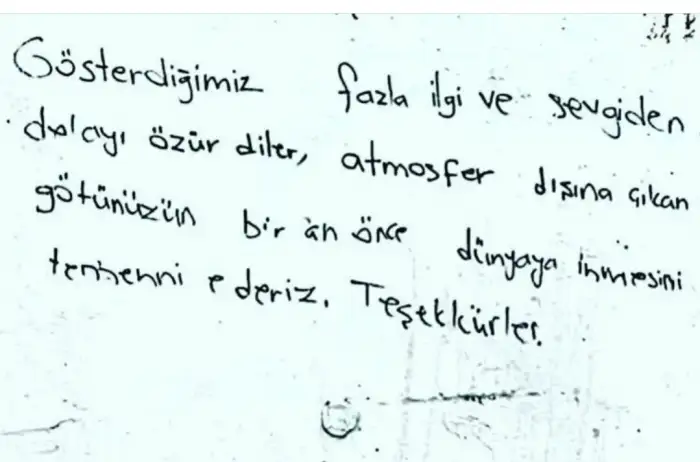 Gösterdiğimiz fazla ilgi ve sevgiden
dolayı özür diler, atmosfer dışına çıkan
götünüzün bir an önce dünyaya inmesini
temenni ederiz. Teşekkürler.